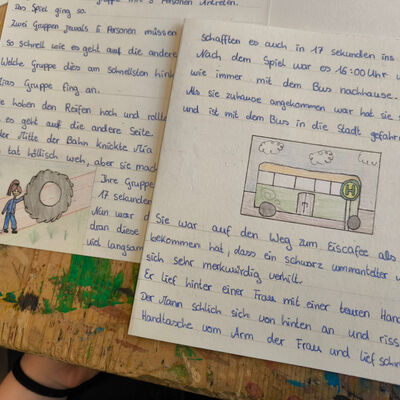 mit 5 Personen antreten.
Das Spiel ging so.
Zwei Gruppen jeweils 5 Personen müssen
so schnell wie es geht auf die andere
Welche Gruppe dies am schnellsten hink
Mias Gruppe fing an.
Sie hoben den Reifen hoch und rollt
es geht auf die andere Seite.
der Mitte der Bahn knickte Mia
tat höllisch weh, aber sie mach
Ihre Gruppe
17 sekunden
Nun war d
dran diese
viel langsam
schafften es auch in 17 sekunden ins
Nach dem Spiel war es 16:00 Uhr u
wie immer mit dem Bus nachhause.
Als sie zuhause angekommen war hat sie s
und ist mit dem Bus in die Stadt gefahr
H
Sie war auf den Weg zum Eiscafee als
bekommen hat, dass ein schwarz ummantelter
sich sehr merkwürdig verhilt.
Er lief hinter einer Frau mit einer teuren Hand
Der Mann schlich sich von hinten an und riss
Handtasche vom Arm der Frau und lief schn